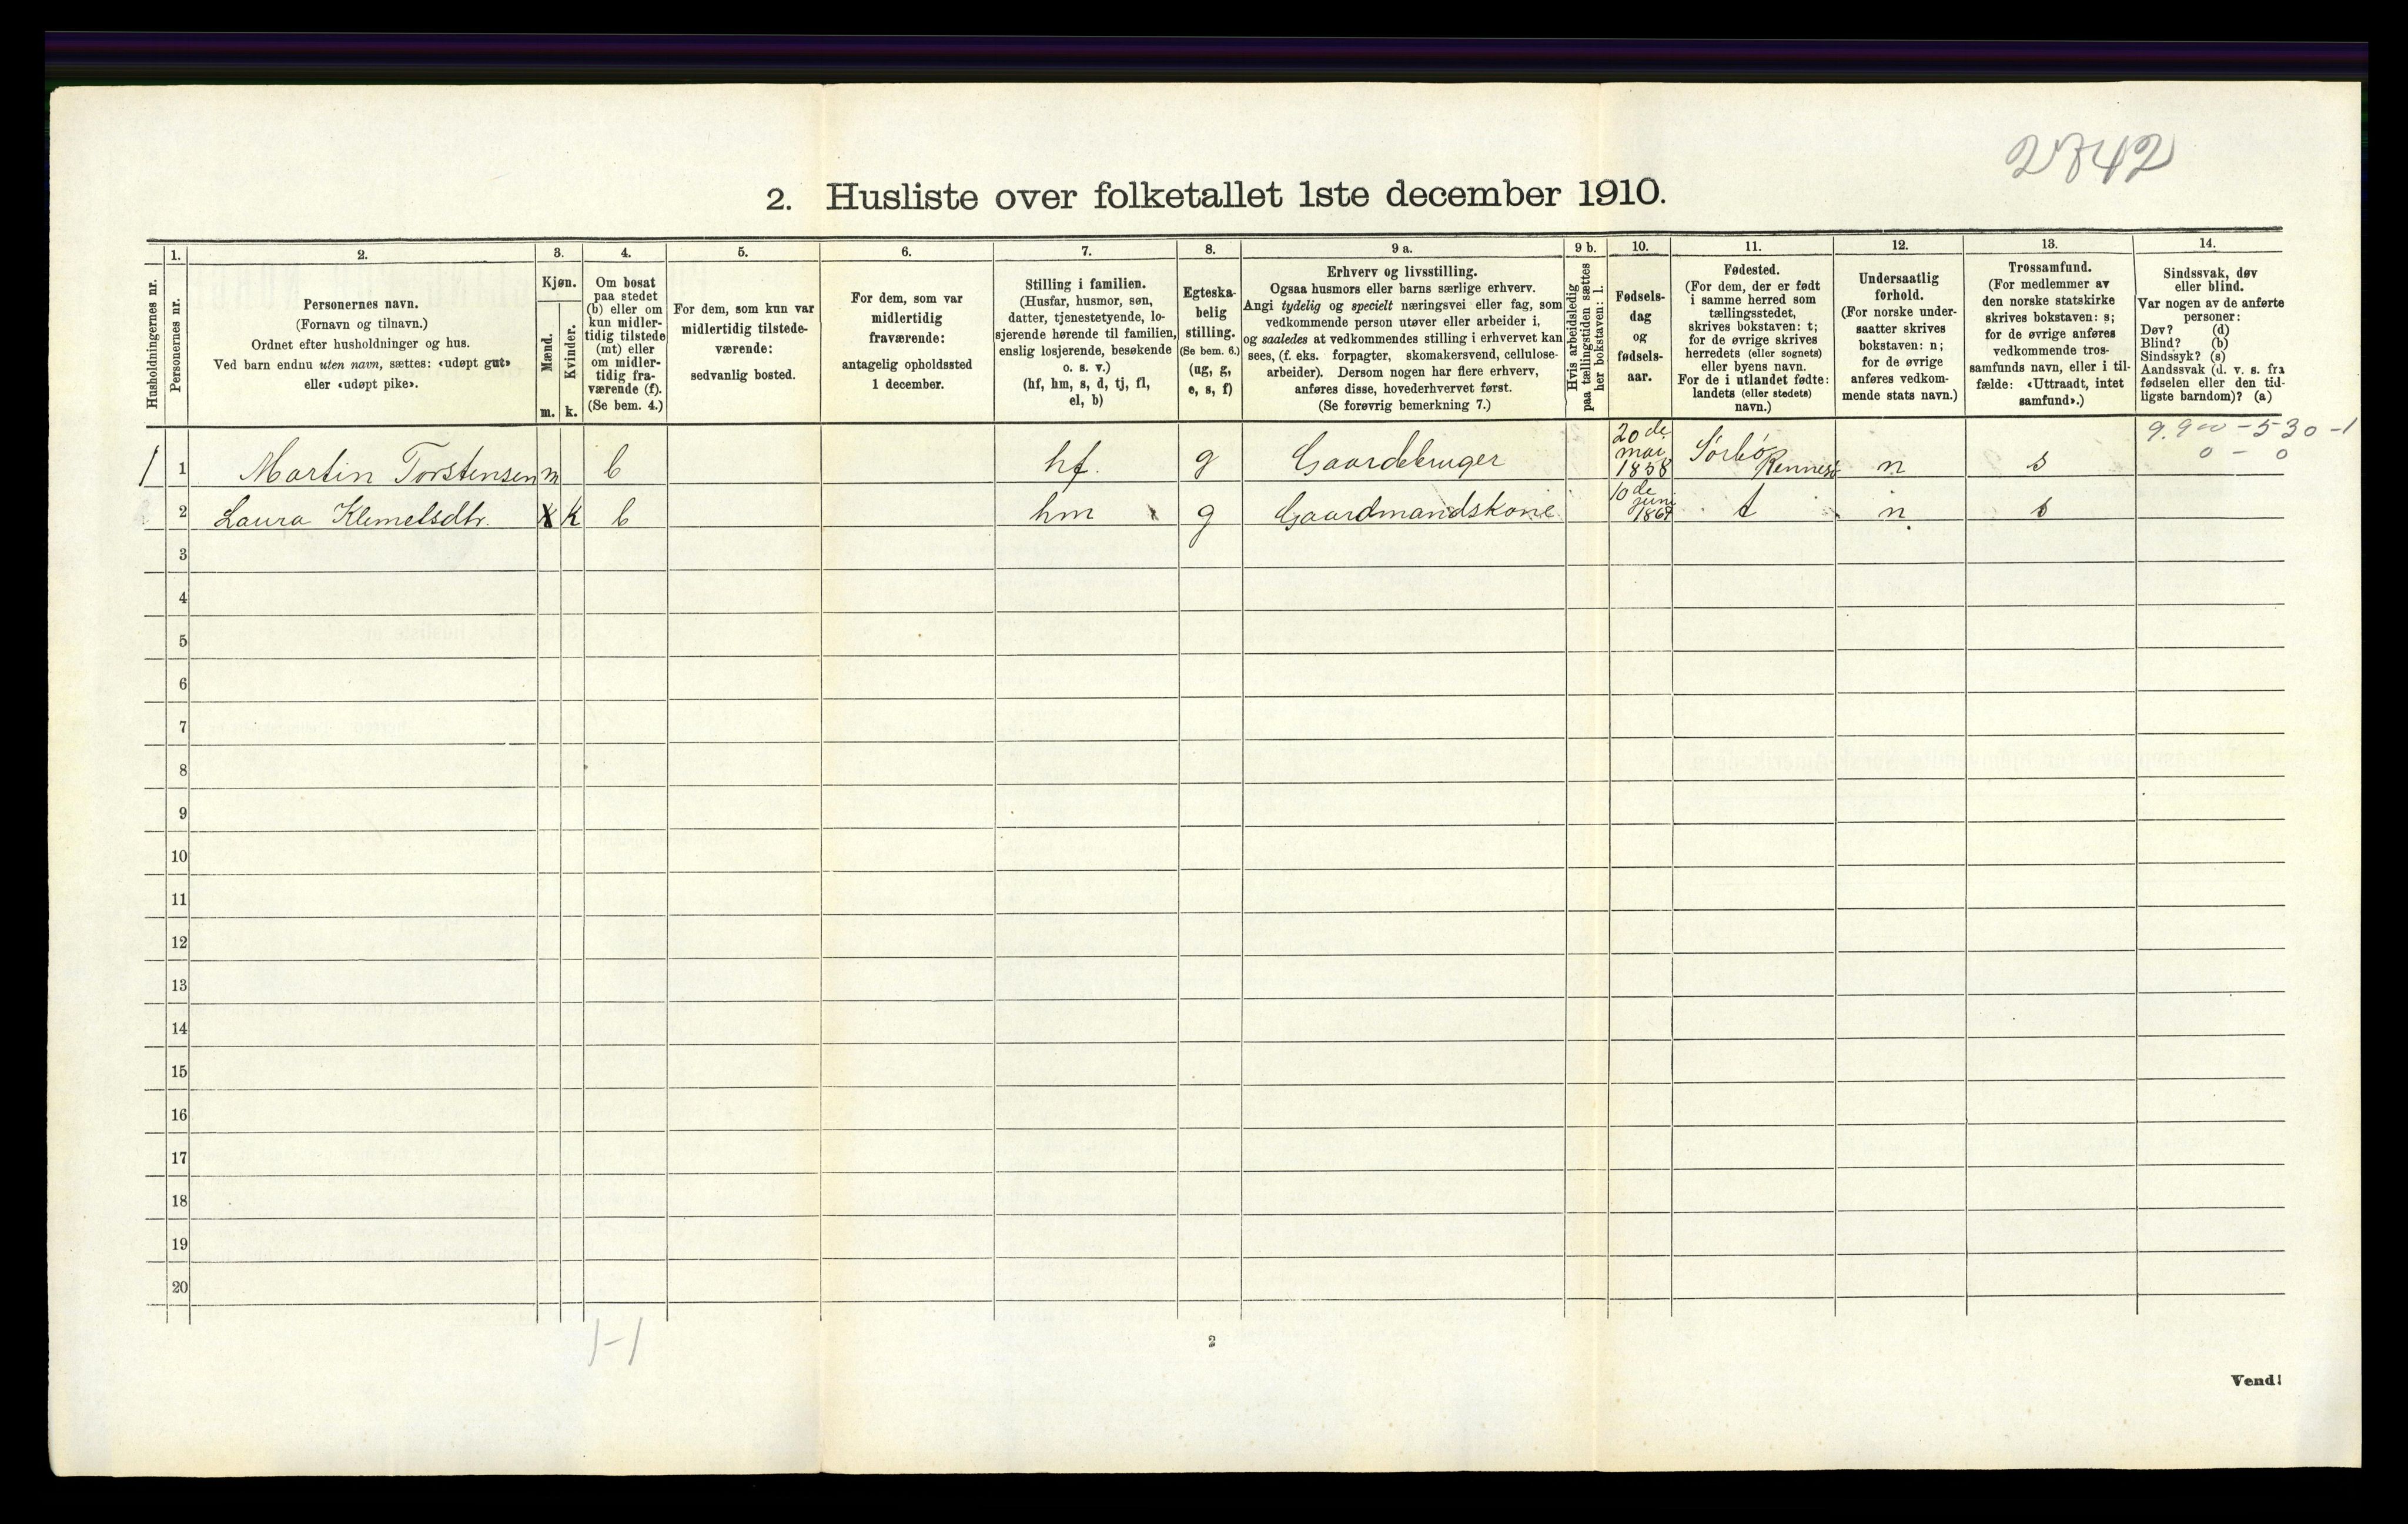 2742
2. Husliste over folketallet 1ste december 1910.
Husholdningernes nr.
1.
Personernes nr.
2.
Personernes navn.
(Fornavn og tilnavn.)
Ordnet efter husholdninger og hus.
Ved barn endnu uten navn, sættes: «udøpt gut»
eller «udøpt pike».
3.
Kjøn.
Mænd.
Kvinder.
m. k.
4.
Om bosat
paa stedet
(b) eller om
kun midler-
tidig tilstede
(mt) eller
om midler-
tidig fra-
værende (f).
(Se bem. 4.)
5.
For dem, som kun var
midlertidig tilstede-
værende:
sedvanlig bosted.
6.
For dem, som var
midlertidig
fraværende:
antagelig opholdssted
1 december.
7.
Stilling i familien.
(Husfar, husmor, søn,
datter, tjenestetyende, lo-
sjerende hørende til familien,
enslig losjerende, besøkende
o. s. v.)
(hf, hm, s, d, tj, fl,
el, b)
8.
Egteska-
belig
stilling.
(Se bem. 6.)
(ug, g,
e, s, f)
9 a.
Erhverv og livsstilling.
Ogsaa husmors eller barns særlige erhverv.
Angi tydelig og specielt næringsvei eller fag, som
vedkommende person utøver eller arbeider i,
og saaledes at vedkommendes stilling i erhvervet kan
sees, (f. eks. forpagter, skomakersvend, cellulose-
arbeider). Dersom nogen har flere erhverv,
anføres disse, hovederhvervet først.
(Se forøvrig bemerkning 7.)
9 b.
Hvis arbeidsledig
paa tællingstiden sættes
her bokstaven: l.
10.
Fødsels-
dag
og
fødsels-
aar.
11.
Fødested.
(For dem, der er født
i samme herred som
tællingsstedet,
skrives bokstaven: t;
for de øvrige skrives
herredets (eller sognets)
eller byens navn.
For de i utlandet fødte:
landets (eller stedets)
navn.)
12.
Undersaatlig
forhold.
(For norske under-
saatter skrives
bokstaven: n;
for de øvrige
anføres vedkom-
mende stats navn.)
13.
Trossamfund.
(For medlemmer av
den norske statskirke
skrives bokstaven: s;
for de øvrige anføres
vedkommende tros-
samfunds navn, eller i til-
fælde: «Uttraadt, intet
samfund».)
14.
Sindssvak, døv
eller blind.
Var nogen av de anførte
personer:
Døv? (d)
Blind? (b)
Sindssyk? (s)
Aandssvak (d. v. s. fra
fødselen eller den tid-
ligste barndom)? (a)
9.900 - 530 - 1
0 - 0
1 1 Martin Torstensen m b hf. g Gaardebruger 20de mai 1858 Sørbø Rennesø n s
2 Laura Klemetsdtr. k b hm g Gaardmandskone 10de juni n s
3
4
5
6
7
8
9
10
11
12
13
14
15
16
17
18
19
20
1-1
2
Vend!